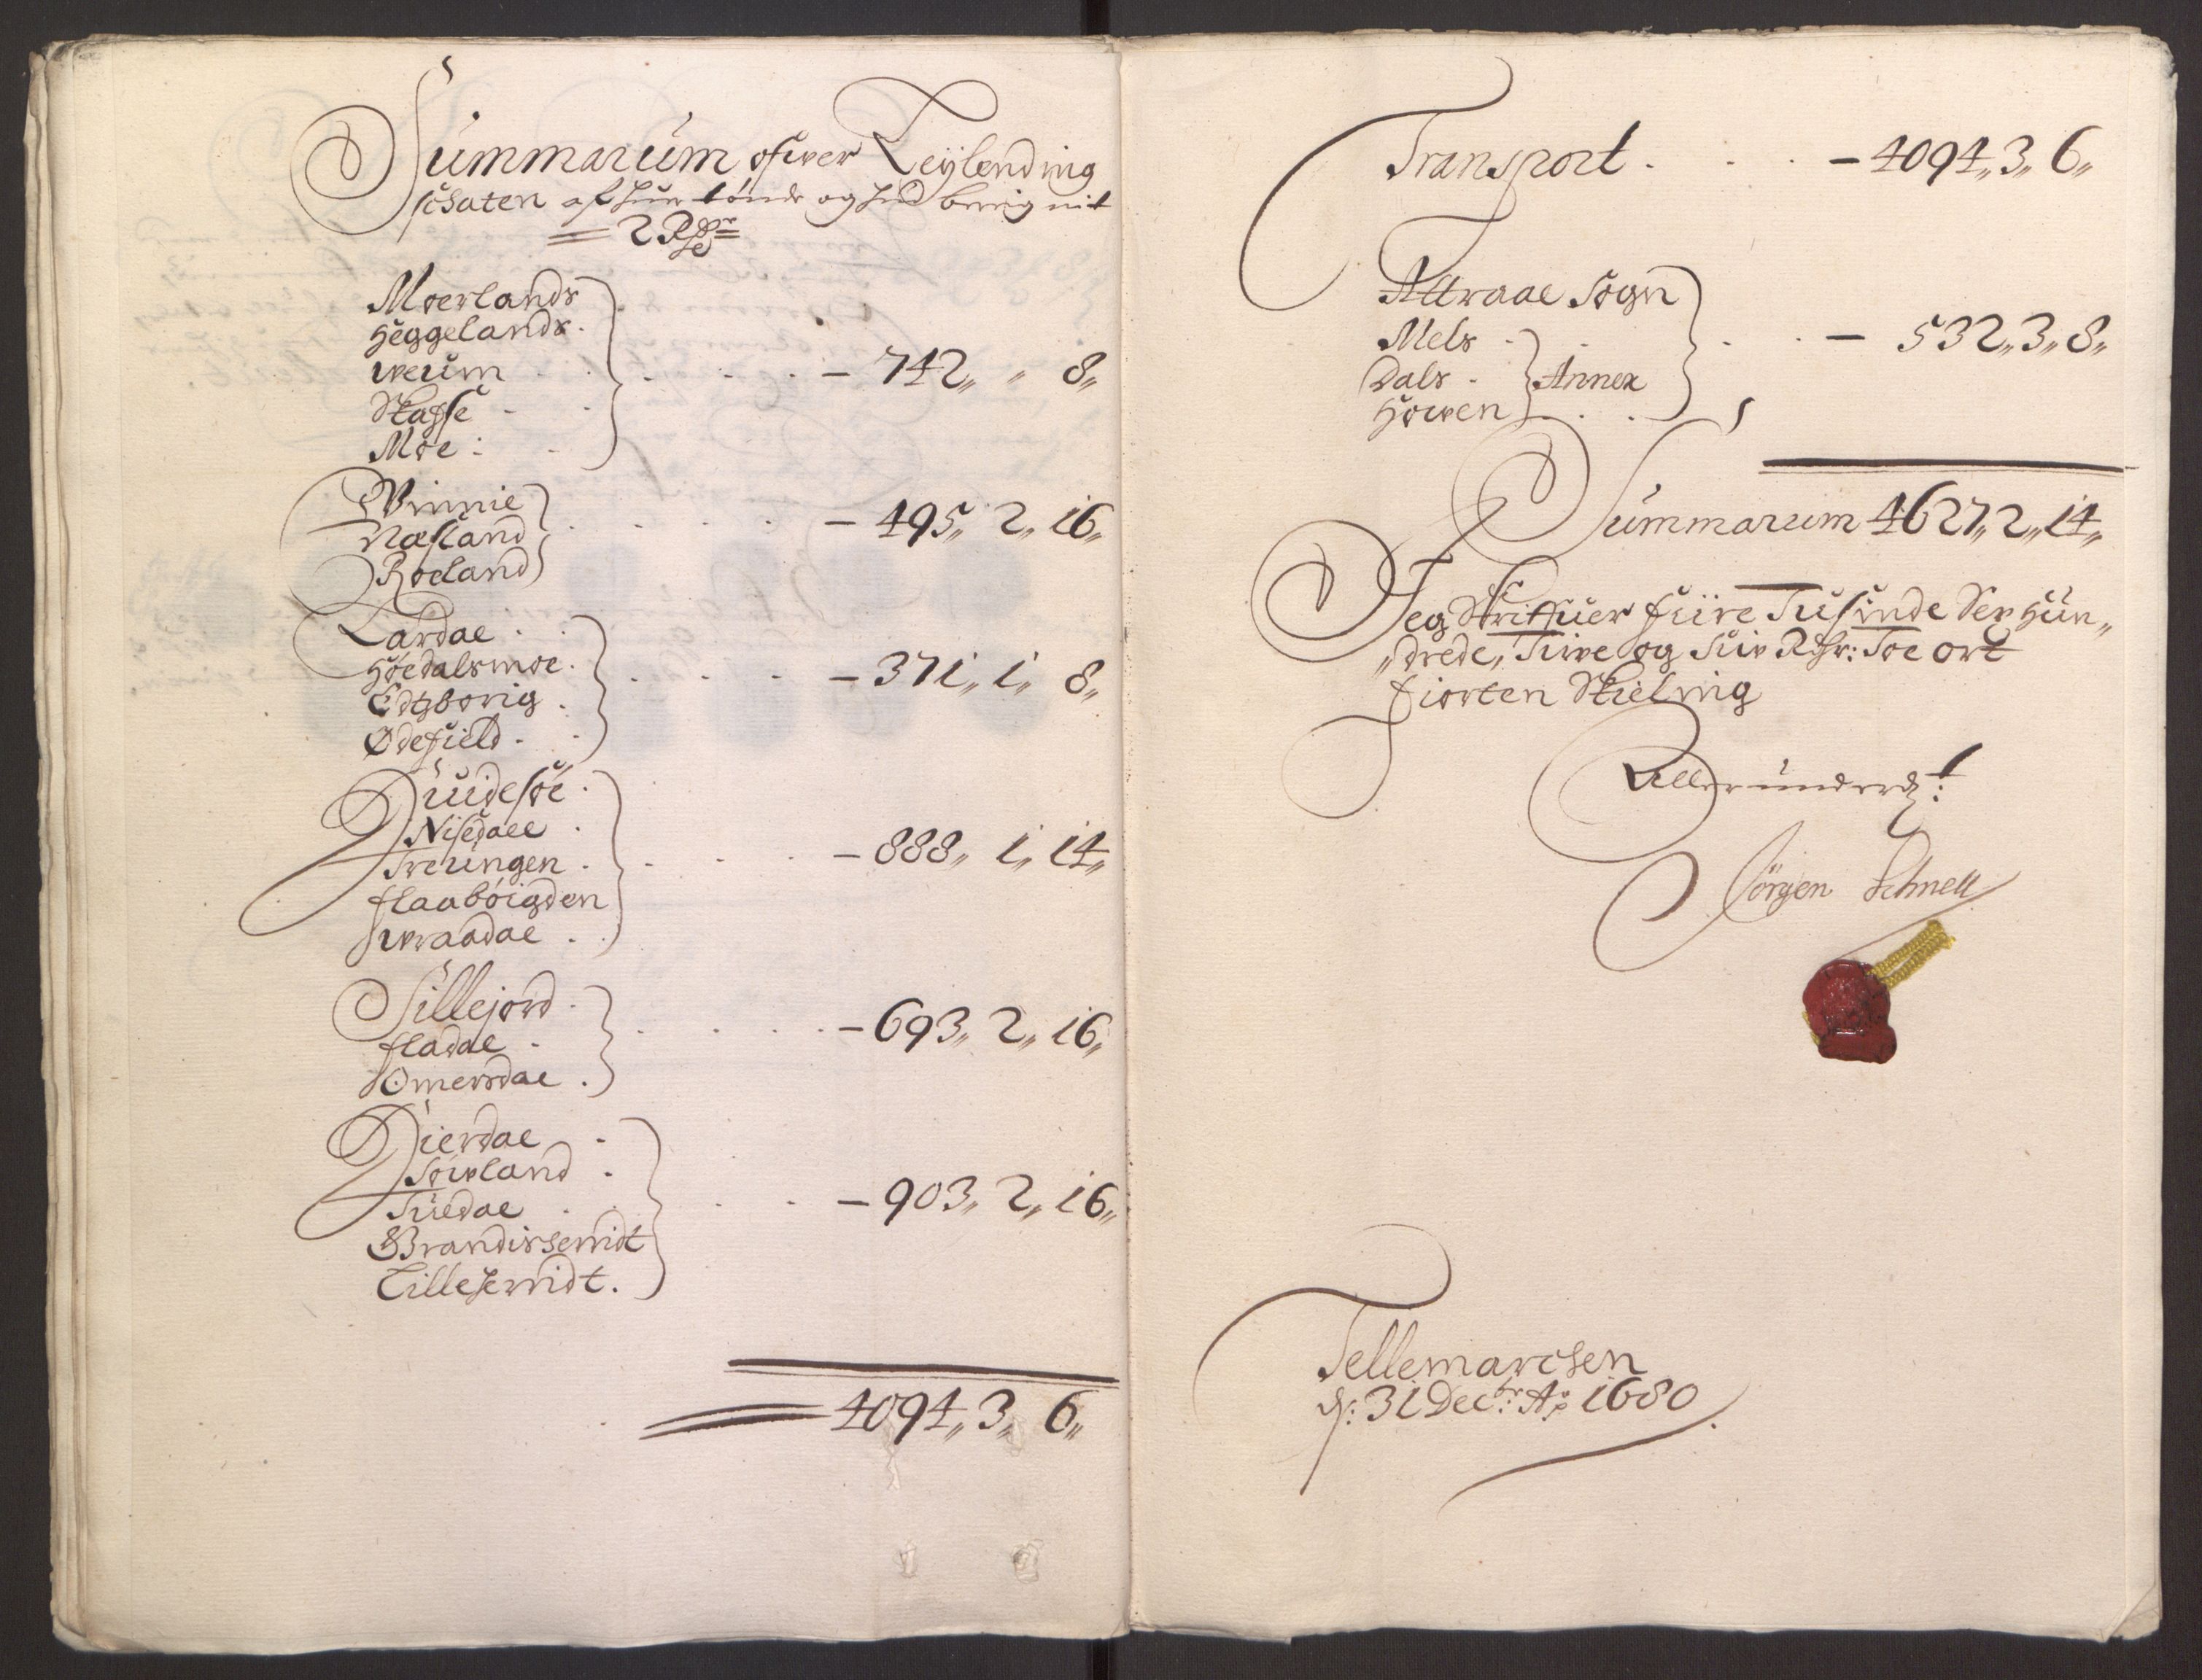 Summarum ofwer Leÿlending
schaten af huer tönde og hud bereignit
2 Rdr
Moerlands
Heggelands
weum
Skafse
Moe
742,, ,, 8,,
Winnie
Næsland
Roeland
495,, 2,, 16,,
Lardae
Höedalsmoe
Edtzborig
Ödefield
371,, 1,, 8,,
Quidesöe
Nisedaee
Treungen
flaaböigden
wraadae
888,, 1,, 14,,
Sillejord
fladae
Omersdae
693,, 2,, 16,,
Hierdae
Söwland
Tuedae
Brandissemidt
Lillesemidt
903,, 2,, 16,,
4094,, 3,, 6,,
Transport - 4094,, 3,, 6,,
Attraae Sogn
Mels
Dals
Howen
Annex
532,, 3,, 8,,
Summarum 4627,, 2,, 14,,
Jeg Skrifuer fiire Tusinde Sex Hün,,
,,drede, Tiwe og Siw Rdr: Toe ort
fiorten Skieling
Allerunderdt:
Jörgen Schnell
Tellemarchen
d: 31 Decbr: Ao 1680